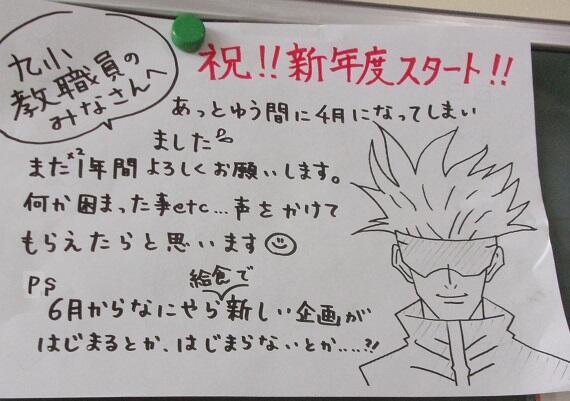 九小
教職員の
みなさんへ
祝!!新年度スタート!!
あっとゆう間に4月になってしまい
ました
また×2 1年間よろしくお願いします。
何か困った事etc...声をかけて
もらえたらと思います
PS
給食で
6月からなにやら新しい企画が
はじまるとか、はじまらないとか.....?!